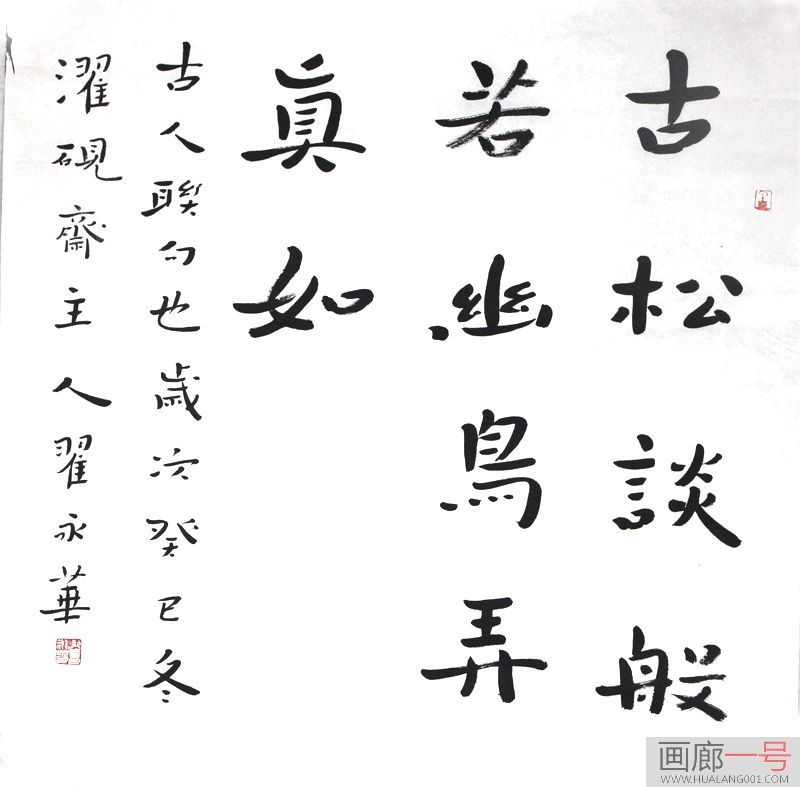 古松談般
若幽鳥弄
真如
古人聯句也歲次癸巳冬
濯硯齋主人翟永華
画廊一号
WWW.HUALANG001.COM